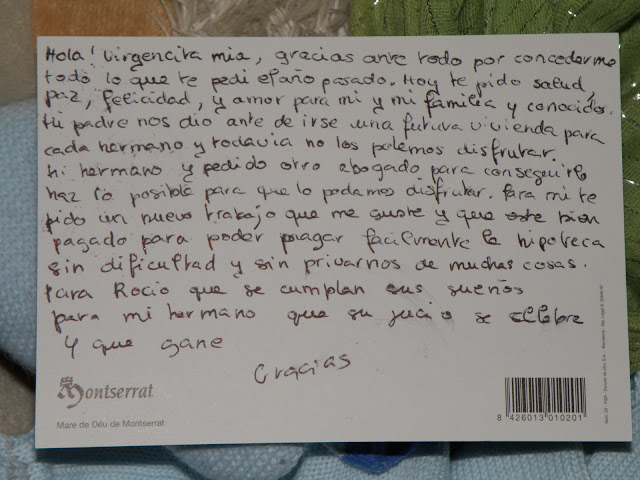 Hola! Virgencita mia, gracias ante todo por concederme
todo lo que te pedi el año pasado. Hoy te pido salud,
paz, felicidad, y amor para mi y mi familia y conocidos.
Mi padre nos dio ante de irse una futura vivienda para
cada hermano y todavia no los podemos disfrutar.
Mi hermano y pedido otro abogado para conseguirlo
haz lo posible para que lo podamos disfrutar. Para mi te
pido un nuevo trabajo que me guste y que este bien
pagado para poder pagar facilmente la hipoteca
sin dificultad y sin privarnos de muchas cosas.
Para Rocio que se cumplan sus sueños
para mi hermano que su juicio se celebre
Y que gane
Gracias
Montserrat
Mare de Déu de Montserrat
8 426013 010201